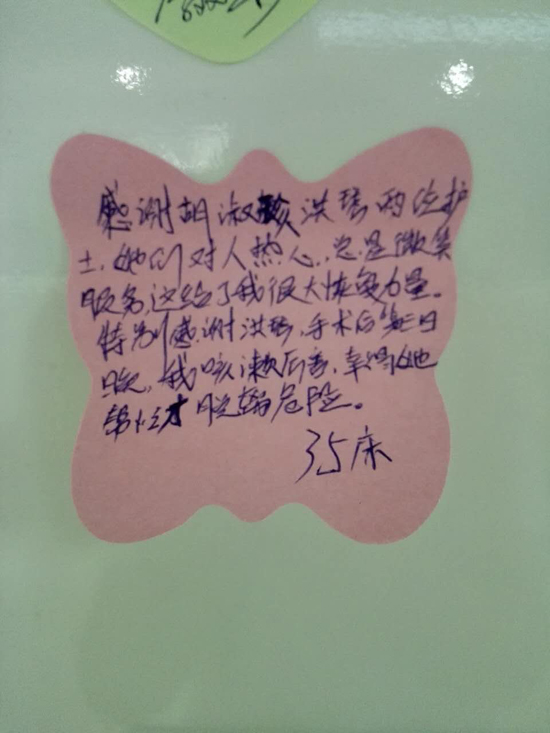 感谢胡淑 洪琴两位护
士,她们对人热心,总是微笑
服务,这给了我很大恢复力量。
特别感谢洪琴,手术后第二日
晚,我咳漱厉害,幸得她
帮忙才脱离危险。
35床